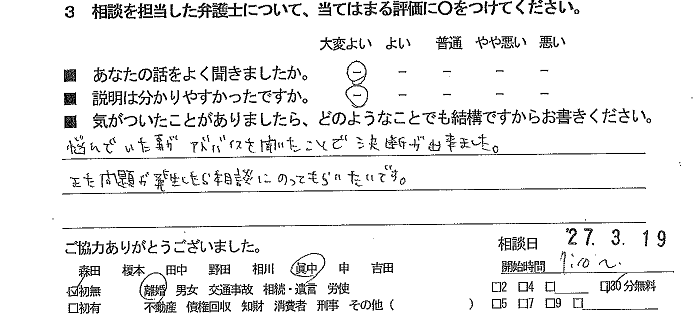 3 相談を担当した弁護士について、当てはまる評価に〇をつけてください。
大変よい よい 普通 やや悪い 悪い
■ あなたの話をよく聞きましたか。 － － － － －
■ 説明は分かりやすかったですか。 － － － － －
■ 気がついたことがありましたら、どのようなことでも結構ですからお書きください。
悩んでいた事が アドバイスを聞いたことで 決断が出来ました。
また問題が発生したら相談にのってもらいたいです。
ご協力ありがとうございました。
相談日 '27. 3. 19
森田 榎本 田中 野田 相川 眞中 申 吉田
開始時間
☑初無 離婚 男女 交通事故 相続・遺言 労使 □2 □4 □ □30分無料
□初有 不動産 債権回収 知財 消費者 刑事 その他 ( ) □5 □7 □9 □